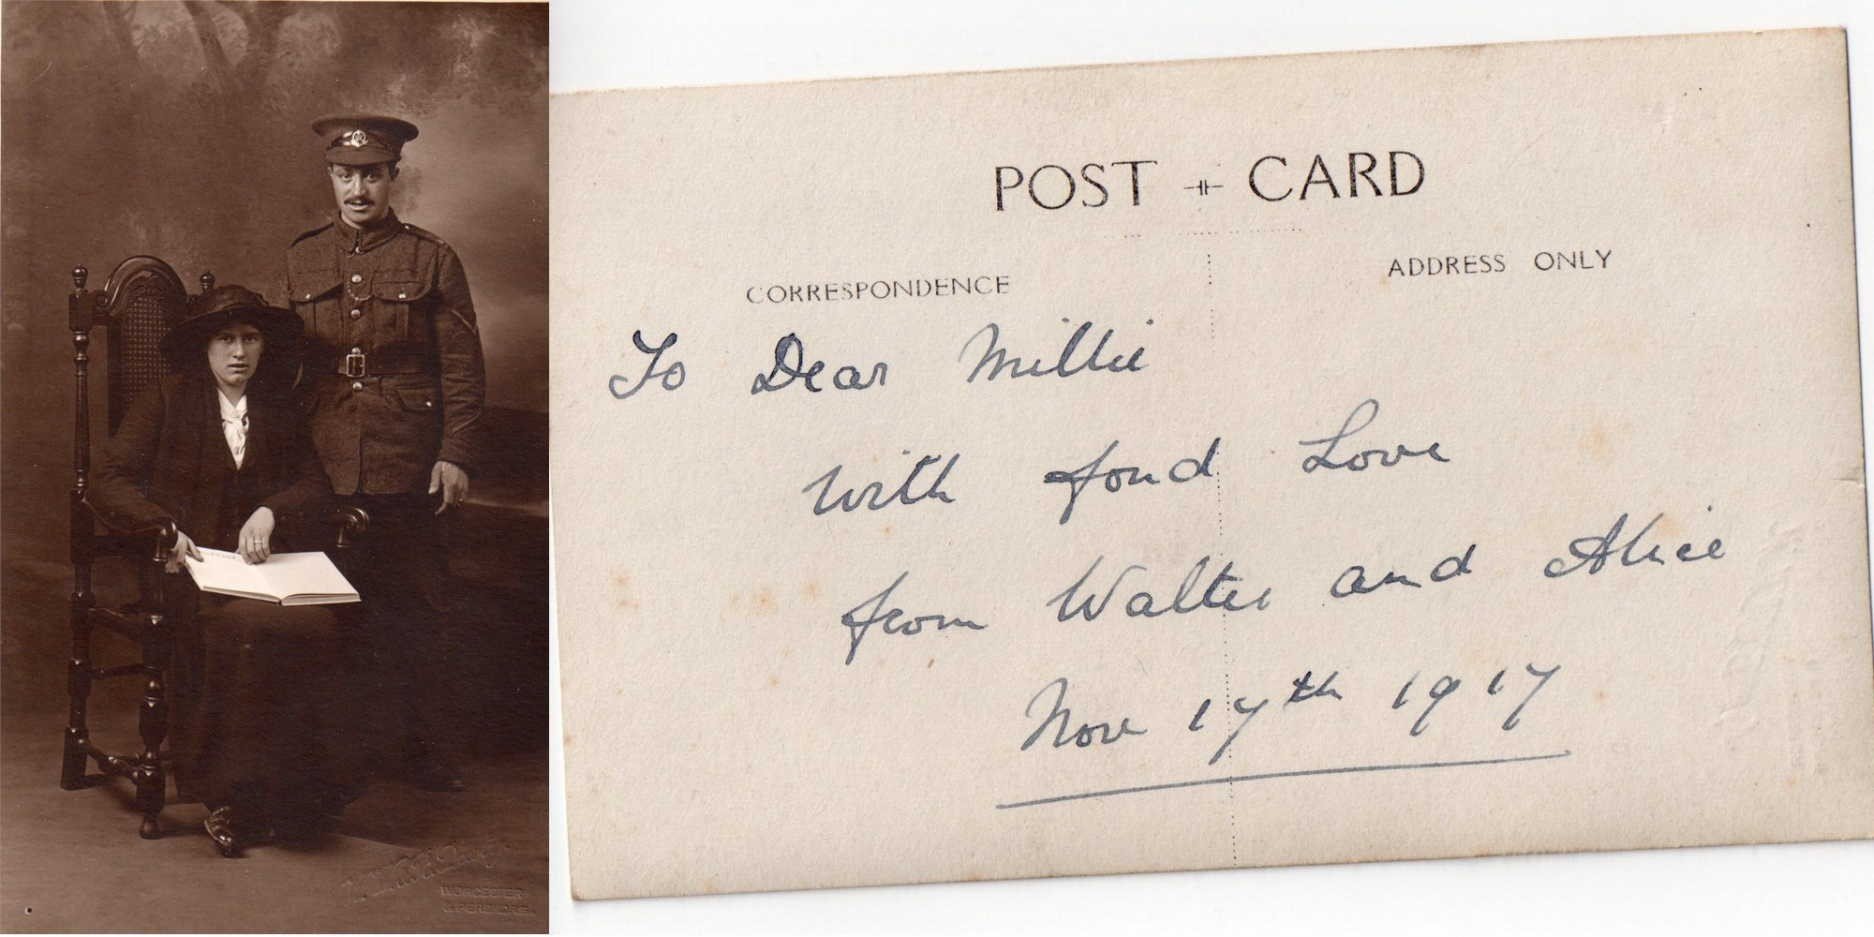 WORCESTER
& PERSHORE
POST CARD
CORRESPONDENCE
ADDRESS ONLY
To Dear Millie
with fond Love
from Walter and Alice
Nov 17th 1917